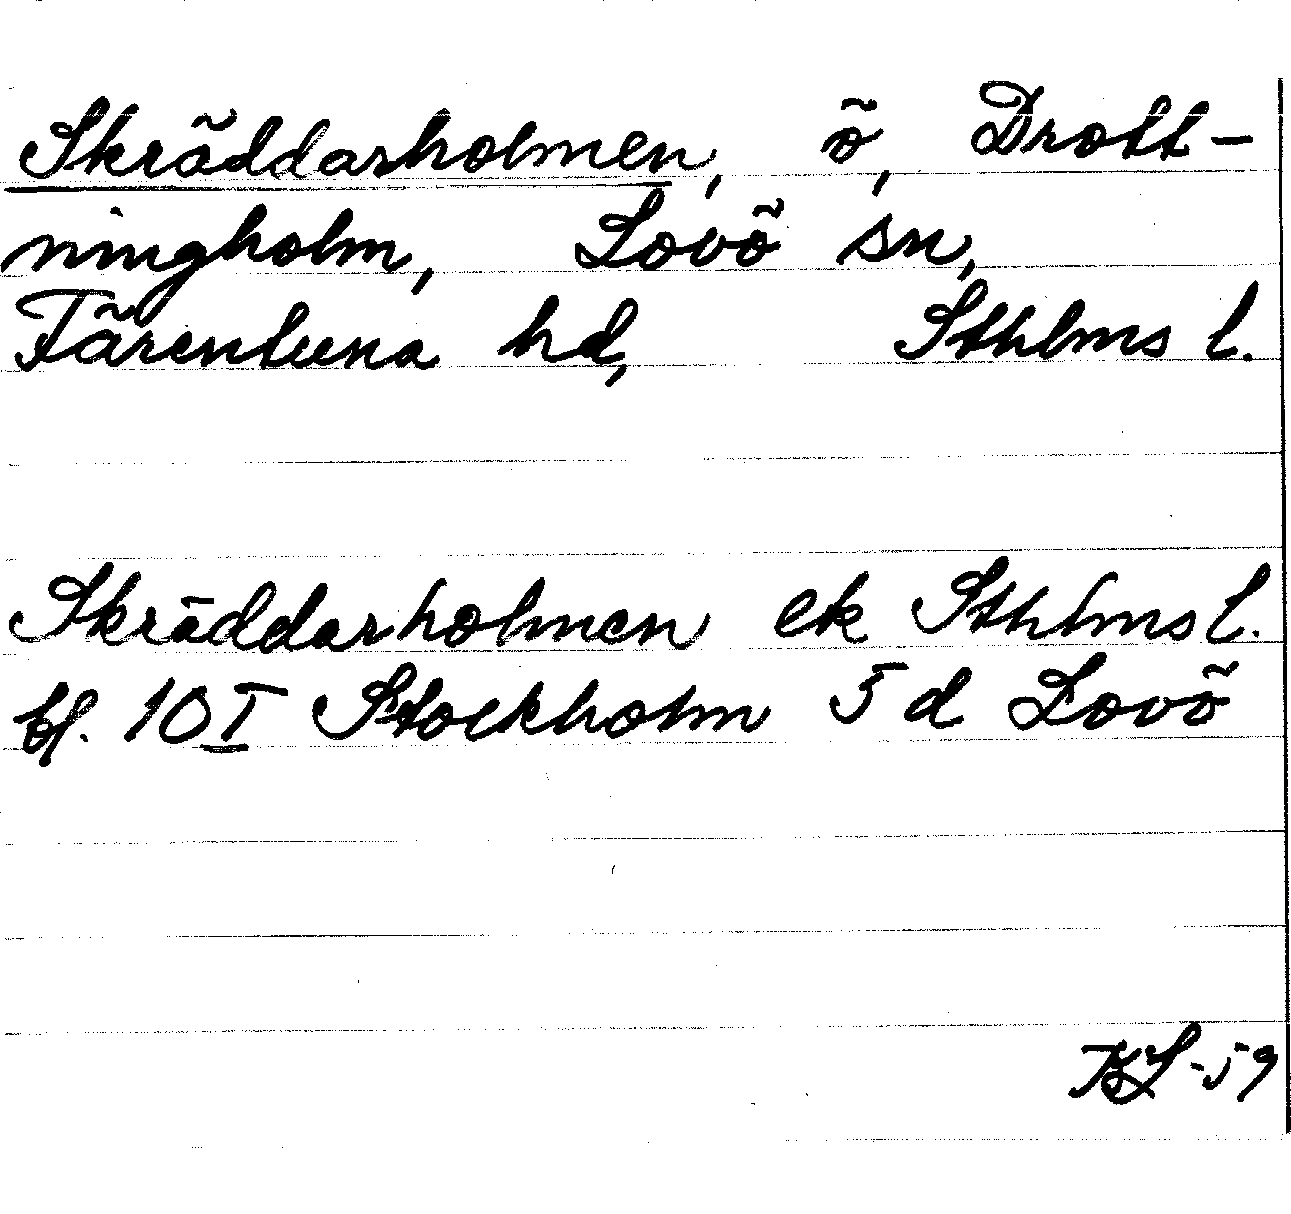 Skräddarholmen, ö, Drott-
ningholm, Lovö sn,
Färentuna hd, Sthlms l.
Skräddarholmen ek Sthlms l.
bl. 10 I Stockholm 5 d Lovö
-59